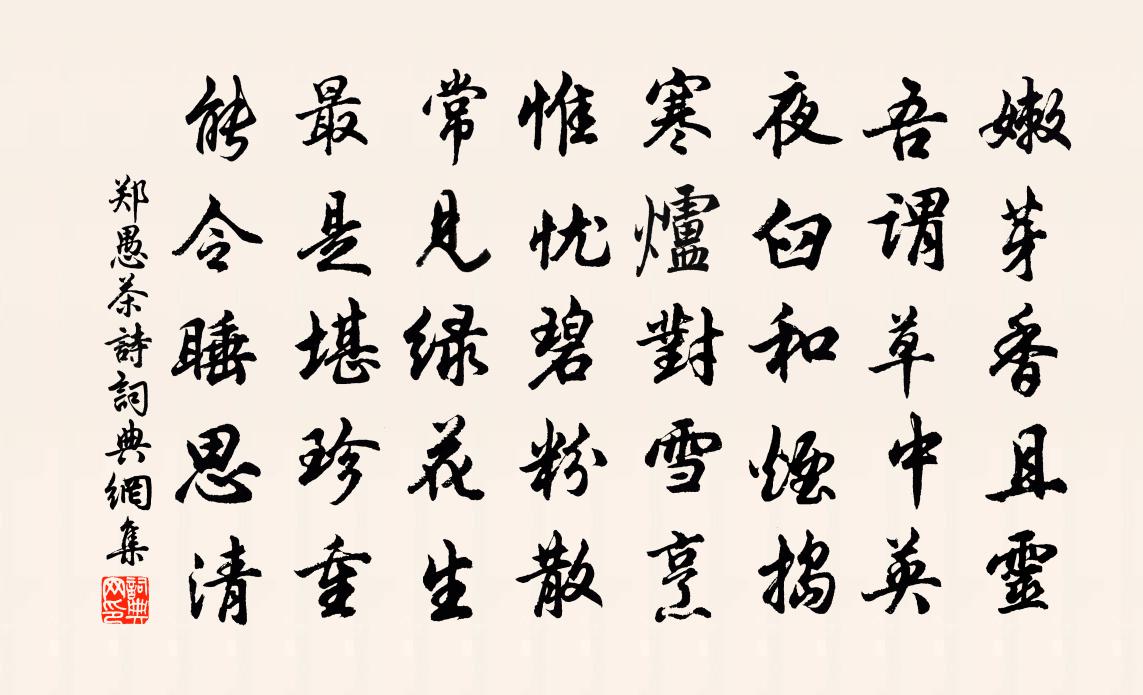 嫩芽香且靈
吾谓草中英
夜臼和煙搗
寒爐對雪烹
惟忧碧粉散
常見绿花生
最是堪珍重
能令睡思清
郑愚茶詩詞典網集
詞典网印